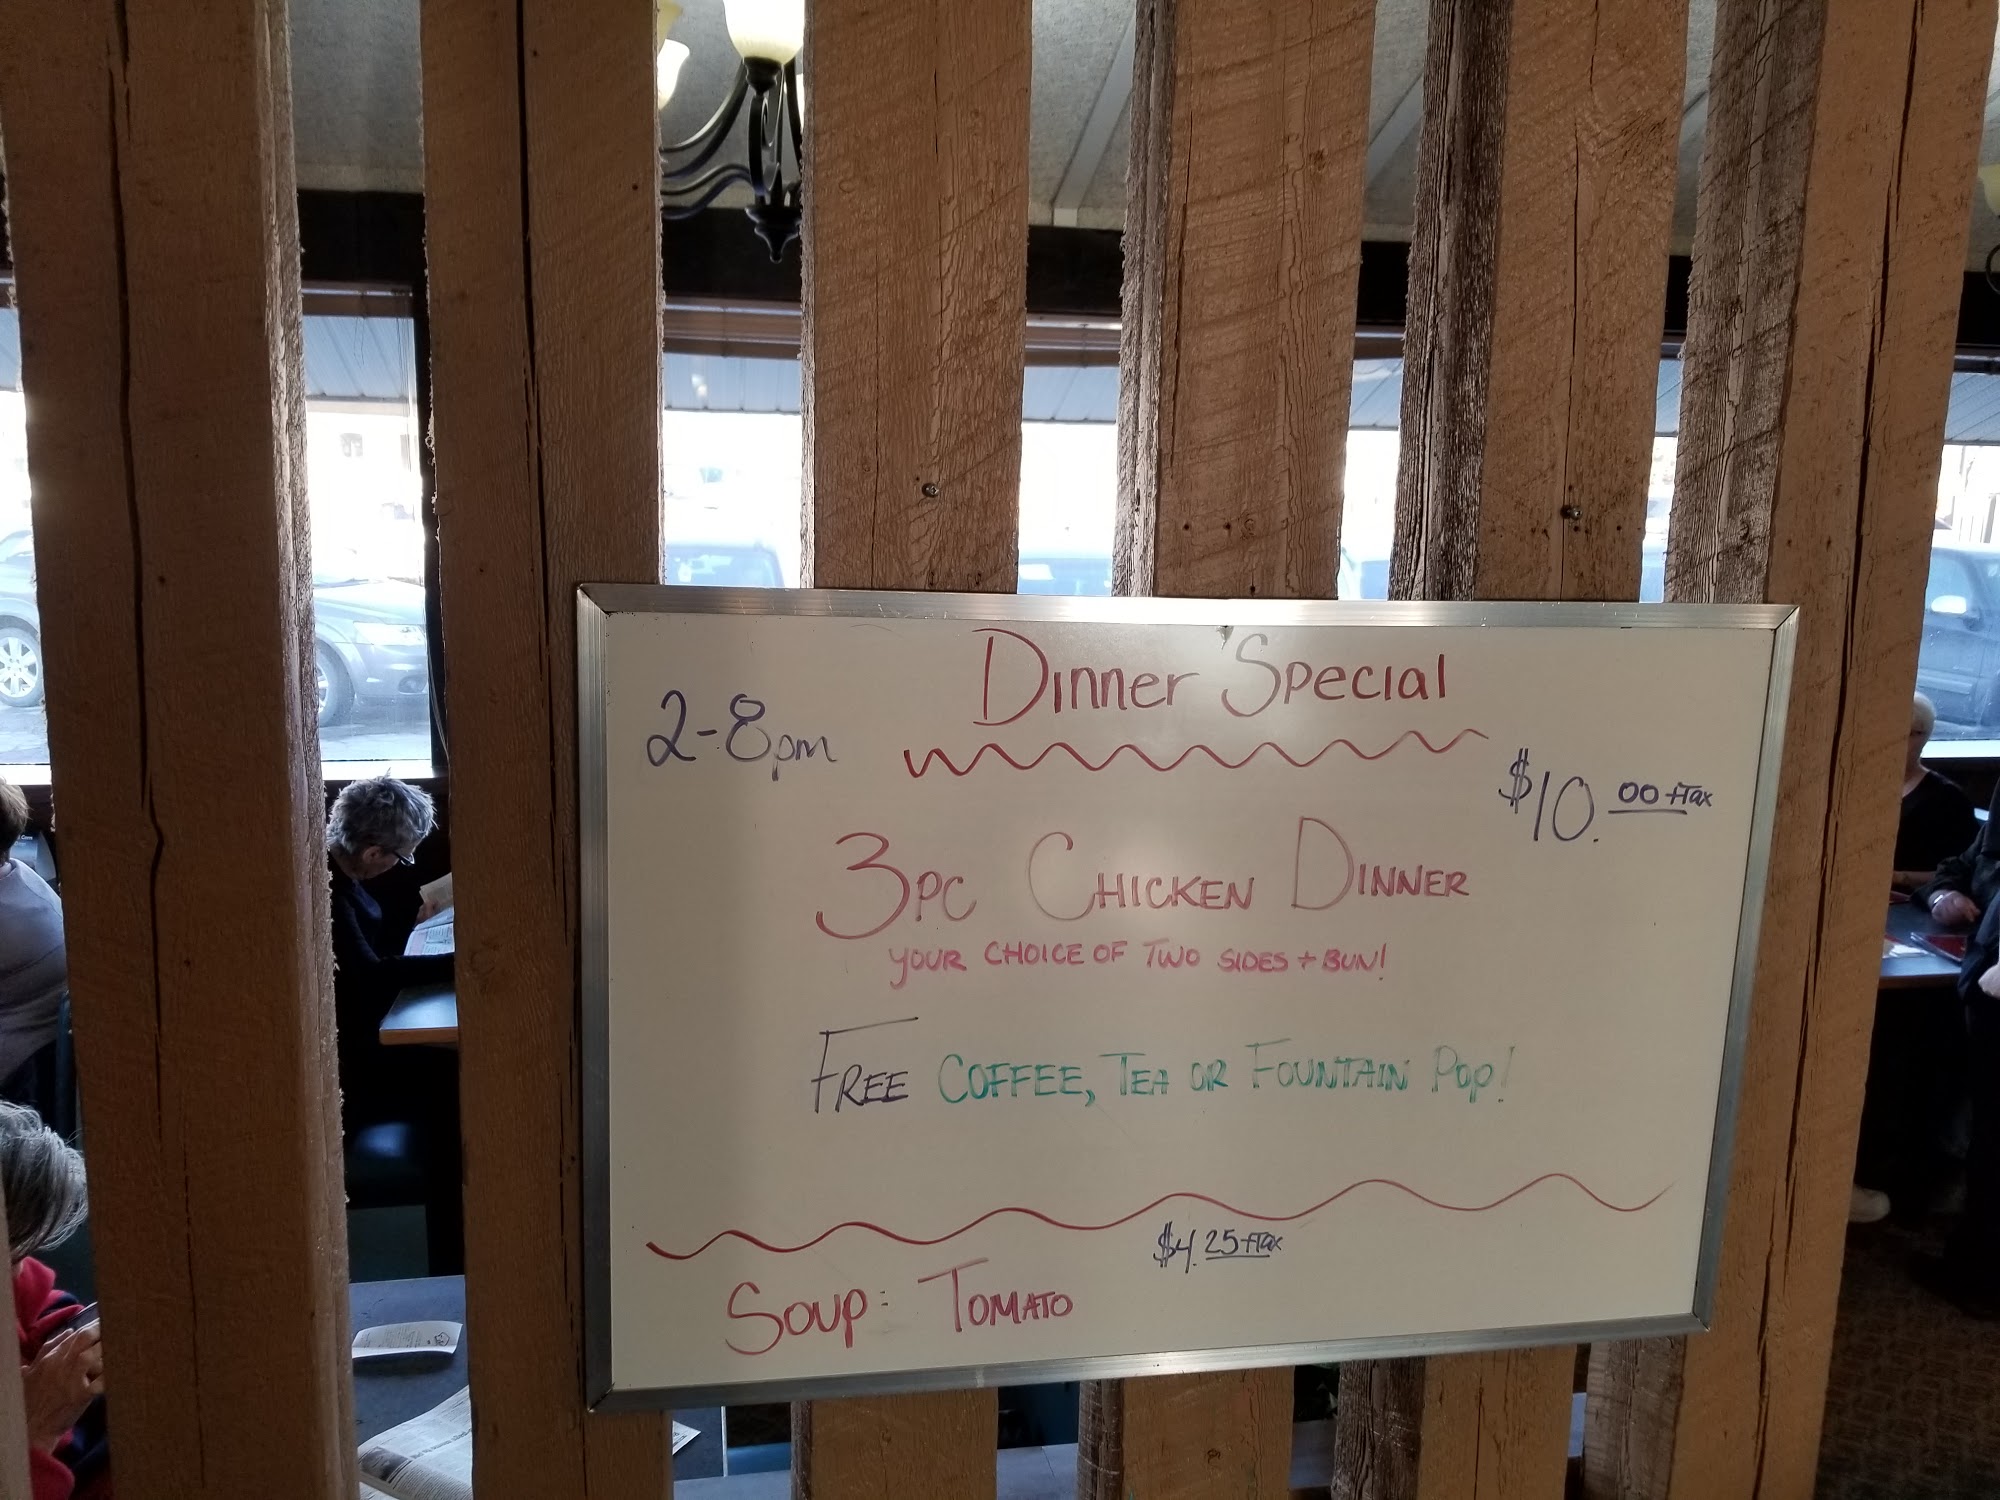 Dinner Special
2-8pm
$10.00 +Tax
3PC CHICKEN DINNER
YOUR CHOICE OF TWO SIDES + BUN!
FREE COFFEE, TEA OR FOUNTAIN POP!
$4.25 +Tax
SOUP: TOMATO